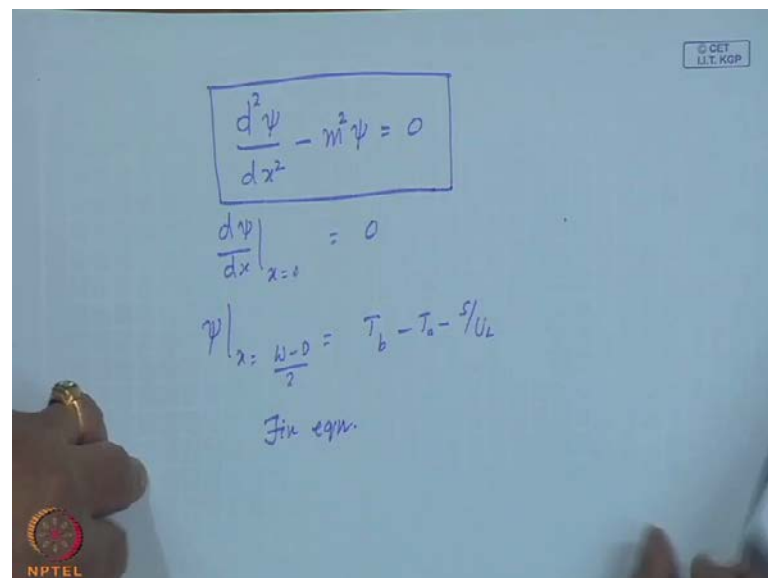 © CET
I.I.T. KGP
d²ψ/dx² - m²ψ = 0
dψ/dx |x=0 = 0
ψ |x= W-D/2 = T_b - T_a - S/U_L
Fin eqn.
NPTEL